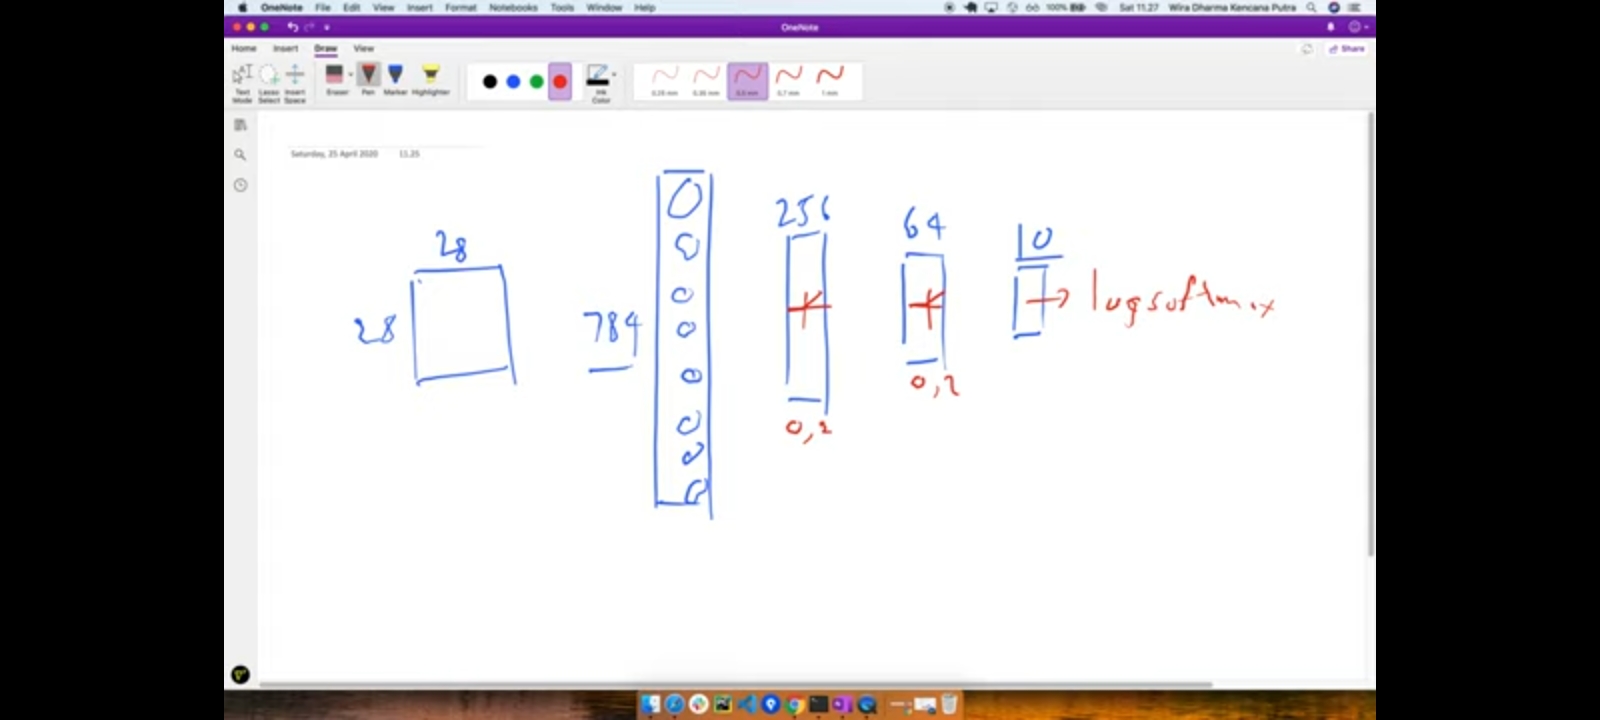 OneNote File Edit View Insert Format Notebooks Tools Window Help 100% Sat 11.27 Wira Dharma Kencana Putra
OneNote
Home Insert Draw View Share
Text Mode Lasso Select Insert Space Eraser Pen Marker Highlighter Ink Color 0.25 mm 0.35 mm 0.5 mm 0.7 mm 1 mm
Saturday, 25 April 2020 11.25
256
64
10
28
28
784
logsoftmax
0,2
0,2